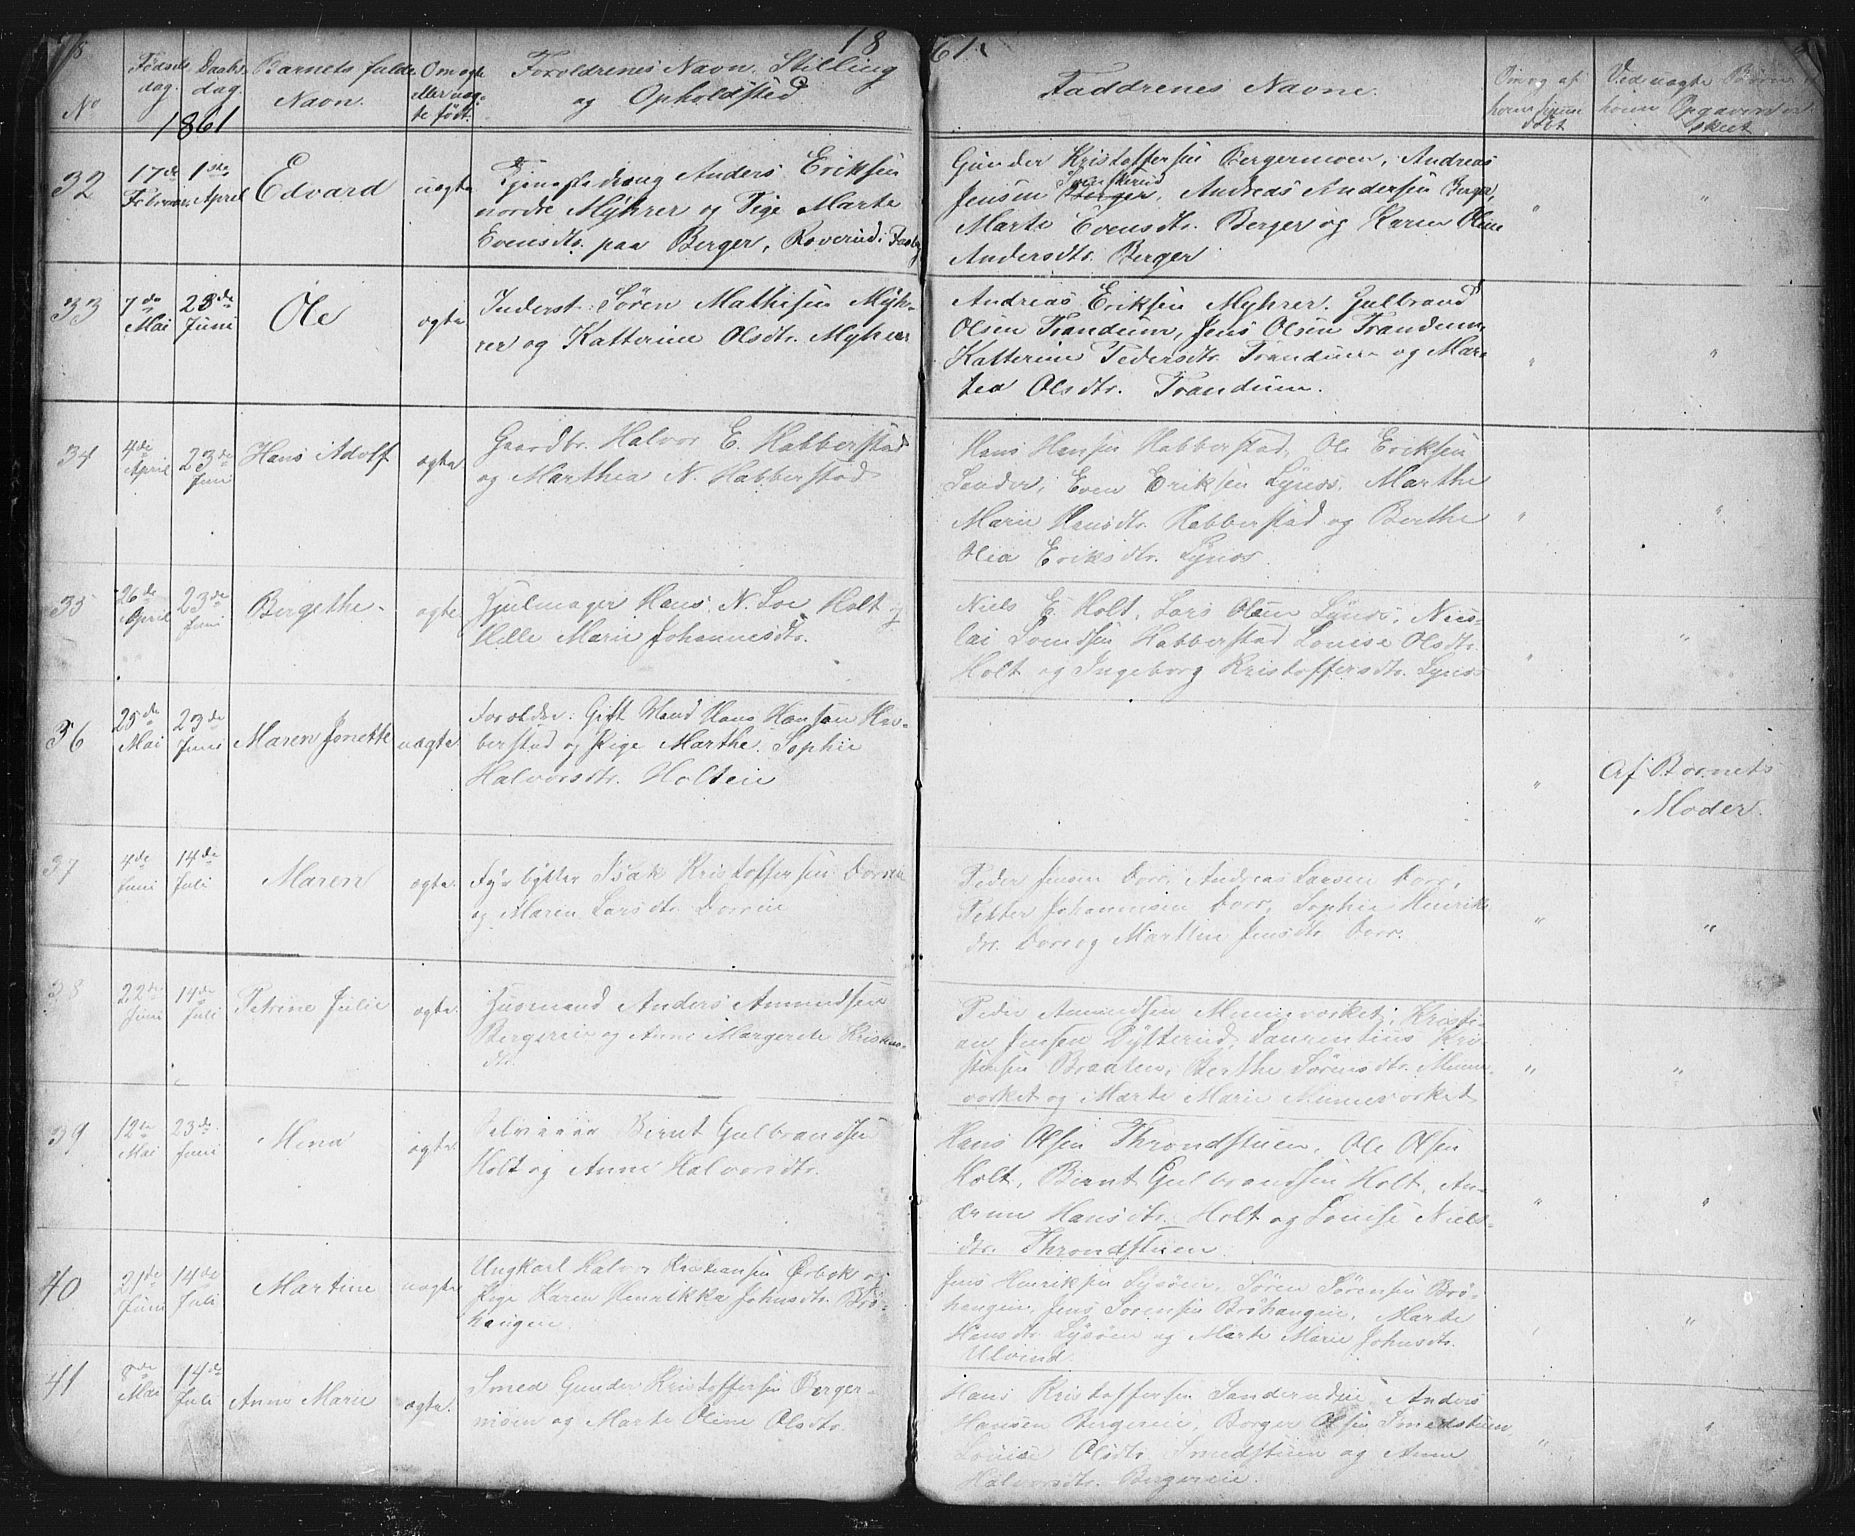 1861
No
Fødsels dag.
Daabs dag.
Barnets fulde Navn.
Om ægte eller uægte født.
Forældrenes Navn, Stilling og Opholdsted
Faddrenes Navne.
Om og af hvem hjemmedøbt
Ved uægte Børn, af hvem Opgaven er skeet
1861
32
17de Februar
1ste April
Edvard
uægte
Tjenestedreng Anders Eriksen
nordre Myhrer og Pige Marte
Evensdtr. paa Berger, Roverud i
Gunder Kristoffersen Bergermoen, Andreas
Jensen Svenskerud, Andreas Andersen Berger,
Marte Evensdtr. Berger og Karen Oline
Andersdtr. Berger
"
"
33
7de Mai
23de Juni
Ole
ægte
Inderst Søren Mathisen Myh-
rer og Katterine Olsdtr. Myhrer
Andreas Eriksen Myhrer. Gulbrand
Olsen Trandum, Jens Olsen Trandum,
Katterine Pedersdtr. Trandum og Mar-
tea Olsdtr. Trandum.
"
"
34
4de April
23de Juni
Hans Adolf
ægte
Gaardbr. Halvor E. Habberstad
og Marthia N. Habberstad
Hans Hansen Habberstad, Ole Eriksen
Sander, Even Eriksen Lynæs, Marthe
Marie Hansdtr. Habberstad og Berthe
Olea Eriksdtr. Lynæs
"
"
35
26de April
23de Juni
Bergethe
ægte
Hjulmager Hans N. Loe Holt og
Helle Marie Johannesdtr.
Niels E. Holt, Lars Olsen Lynæs, Nico-
lai Svendsen Habberstad Louise Olsdtr.
Holt og Ingeborg Kristoffersdtr. Lynæs
"
"
36
25de Mai
23de Juni
Maren Jonette
uægte
Forældre: Gift Mand Hans Hansen Hab-
berstad og Pige Marthe Sophie
Halvorsdtr. Holteie
"
Af Barnets
Moder.
37
4de Juni
14de Juli
Maren
ægte.
Fyrbøtter Isak Kristoffersen Dorreie
og Maren Larsdtr. Dorreie
Peder Jensen Dorr, Andreas Larsen Dorr,
Petter Johannesen Dorr, Sophie Henriks-
dtr. Dorr og Marthe Jensdtr. Dorr.
"
"
38
22de Juni
14de Juli
Petrine Julie
ægte.
Husmand Anders Amundsen
Bergereie og Anne Margrete Kristens-
dtr.
Peder Amundsen Minnevorket, Kristi-
an Jensen Dytterud, Laurentius Kri-
stensen Braaten, Berthe Sørensdtr. Minne-
vorket og Marte Marie Minnevorket
"
"
39
12te Mai
23de Juni
Mina
ægte.
Selveier Bernt Gulbrandsen
Holt og Anne Halvorsdtr.
Hans Olsen Throndstuen, Ole Olsen
Holt, Bernt Gulbrandsen Holt, An-
drine Hansdtr. Holt og Louise Niels-
dtr. Throndstuen
"
"
40
21de Juni
14de Juli
Martine
uægte
Ungkarl Halvor Kristiansen Ørbæk og
Pige Karen Henrikka Johnsdtr. Brø-
hangen.
Jens Henriksen Lysøen, Søren Sørensen Brø-
hangen, Jens Sørensen Brøhangen, Marte
Hansdtr. Lysøen og Marte Marie Johnsdtr.
Ulvind
"
"
41
8de Mai
14de Juli
Anne Marie
ægte.
Smed Gunder Kristoffersen Berger-
moen og Marte Oline Olsdtr.
Hans Kristoffersen Sanderudeie, Anders
Hansen Bergereie, Borger Olsen Smedstuen
Louise Olsdtr. Smedstuen og Anne
Halvorsdtr. Bergereie.
"
"